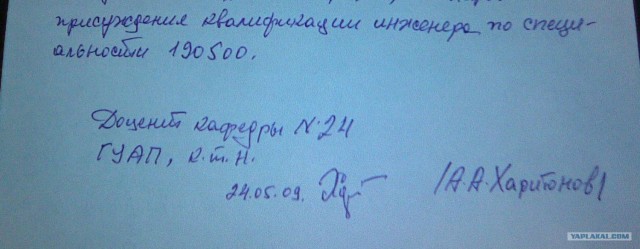 присуждения квалификации инженера по специ-
альности 190500.
Доцент кафедры №24
ГУАП, к.т.н.
24.05.09.
/А.А.Харитонов/
YAPLAKAL.COM